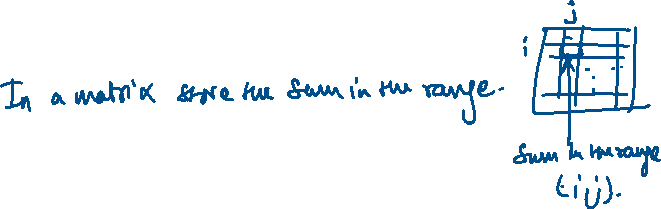 j
i
In a matrix store the sum in the range.
Sum in the range
(i,j).